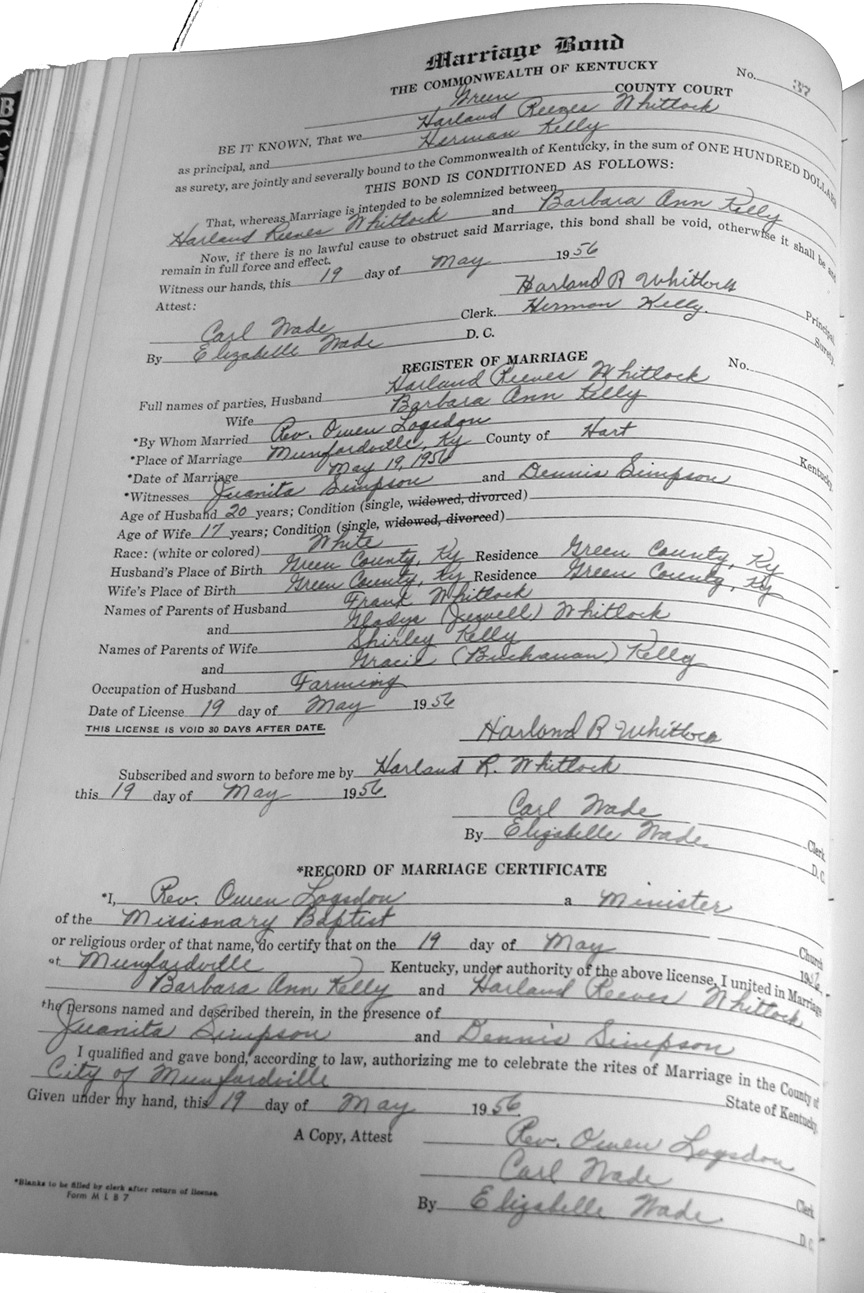 Marriage Bond
THE COMMONWEALTH OF KENTUCKY
No. 37
Green COUNTY COURT
BE IT KNOWN, That we Harland Reeves Whitlock
as principal, and Herman Kelly
as surety, are jointly and severally bound to the Commonwealth of Kentucky, in the sum of ONE HUNDRED DOLLARS
THIS BOND IS CONDITIONED AS FOLLOWS:
That, whereas Marriage is intended to be solemnized between
Harland Reeves Whitlock and Barbara Ann Kelly
Now, if there is no lawful cause to obstruct said Marriage, this bond shall be void, otherwise it shall be and
remain in full force and effect.
Witness our hands, this 19 day of May 1956
Attest: Harland R Whitlock Principal.
Carl Wade Clerk. Herman Kelly. Surety.
By Elizabelle Wade D. C.
REGISTER OF MARRIAGE No.
Full names of parties, Husband Harland Reeves Whitlock
Wife Barbara Ann Kelly
*By Whom Married Rev. Owen Logsdon
*Place of Marriage Munfordville, Ky County of Hart Kentucky.
*Date of Marriage May 19, 1956
*Witnesses Juanita Simpson and Dennis Simpson
Age of Husband 20 years; Condition (single, widowed, divorced)
Age of Wife 17 years; Condition (single, widowed, divorced)
Race: (white or colored) White
Husband's Place of Birth Green County, Ky Residence Green County, Ky
Wife's Place of Birth Green County, Ky Residence Green County, Ky
Names of Parents of Husband Frank Whitlock
and Gladys (Jewell) Whitlock
Names of Parents of Wife Shirley Kelly
and Gracie (Buchanan) Kelly
Occupation of Husband Farming
Date of License 19 day of May 1956
THIS LICENSE IS VOID 30 DAYS AFTER DATE.
Harland R Whitlock
Subscribed and sworn to before me by Harland R. Whitlock
this 19 day of May 1956.
Carl Wade Clerk.
By Elizabelle Wade. D. C.
*RECORD OF MARRIAGE CERTIFICATE
*I, Rev. Owen Logsdon a Minister
of the Missionary Baptist Church
or religious order of that name, do certify that on the 19 day of May 1956,
at Munfardville Kentucky, under authority of the above license, I united in Marriage
Barbara Ann Kelly and Harland Reeves Whitlock
the persons named and described therein, in the presence of
Juanita Simpson and Dennis Simpson
I qualified and gave bond, according to law, authorizing me to celebrate the rites of Marriage in the County of
City of Munfardville State of Kentucky.
Given under my hand, this 19 day of May 1956.
A Copy, Attest Rev. Owen Logsdon
Carl Wade Clerk
By Elizabelle Wade D. C.
*Blanks to be filled by clerk after return of license.
Form M L B 7